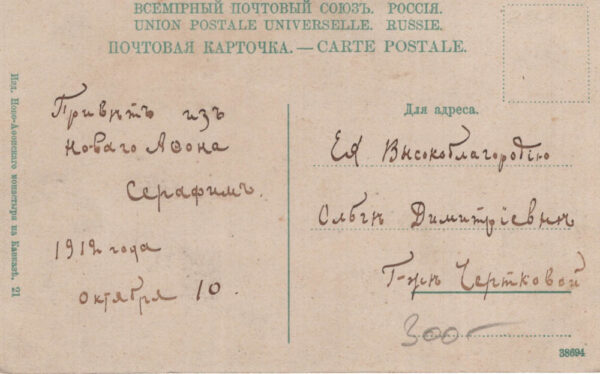 ВСЕМІРНЫЙ ПОЧТОВЫЙ СОЮЗЪ. РОССІЯ.
UNION POSTALE UNIVERSELLE. RUSSIE.
ПОЧТОВАЯ КАРТОЧКА. — CARTE POSTALE.
Изд. Ново-Аѳонскаго монастыря на Кавказѣ. 21
Привѣтъ изъ
Новаго Аѳона
Серафимъ.
1912 года
октября 10.
Для адреса.
Ея Высокоблагородію
Ольгѣ Димитріевнѣ
Г-жѣ Чертковой
300-
38694